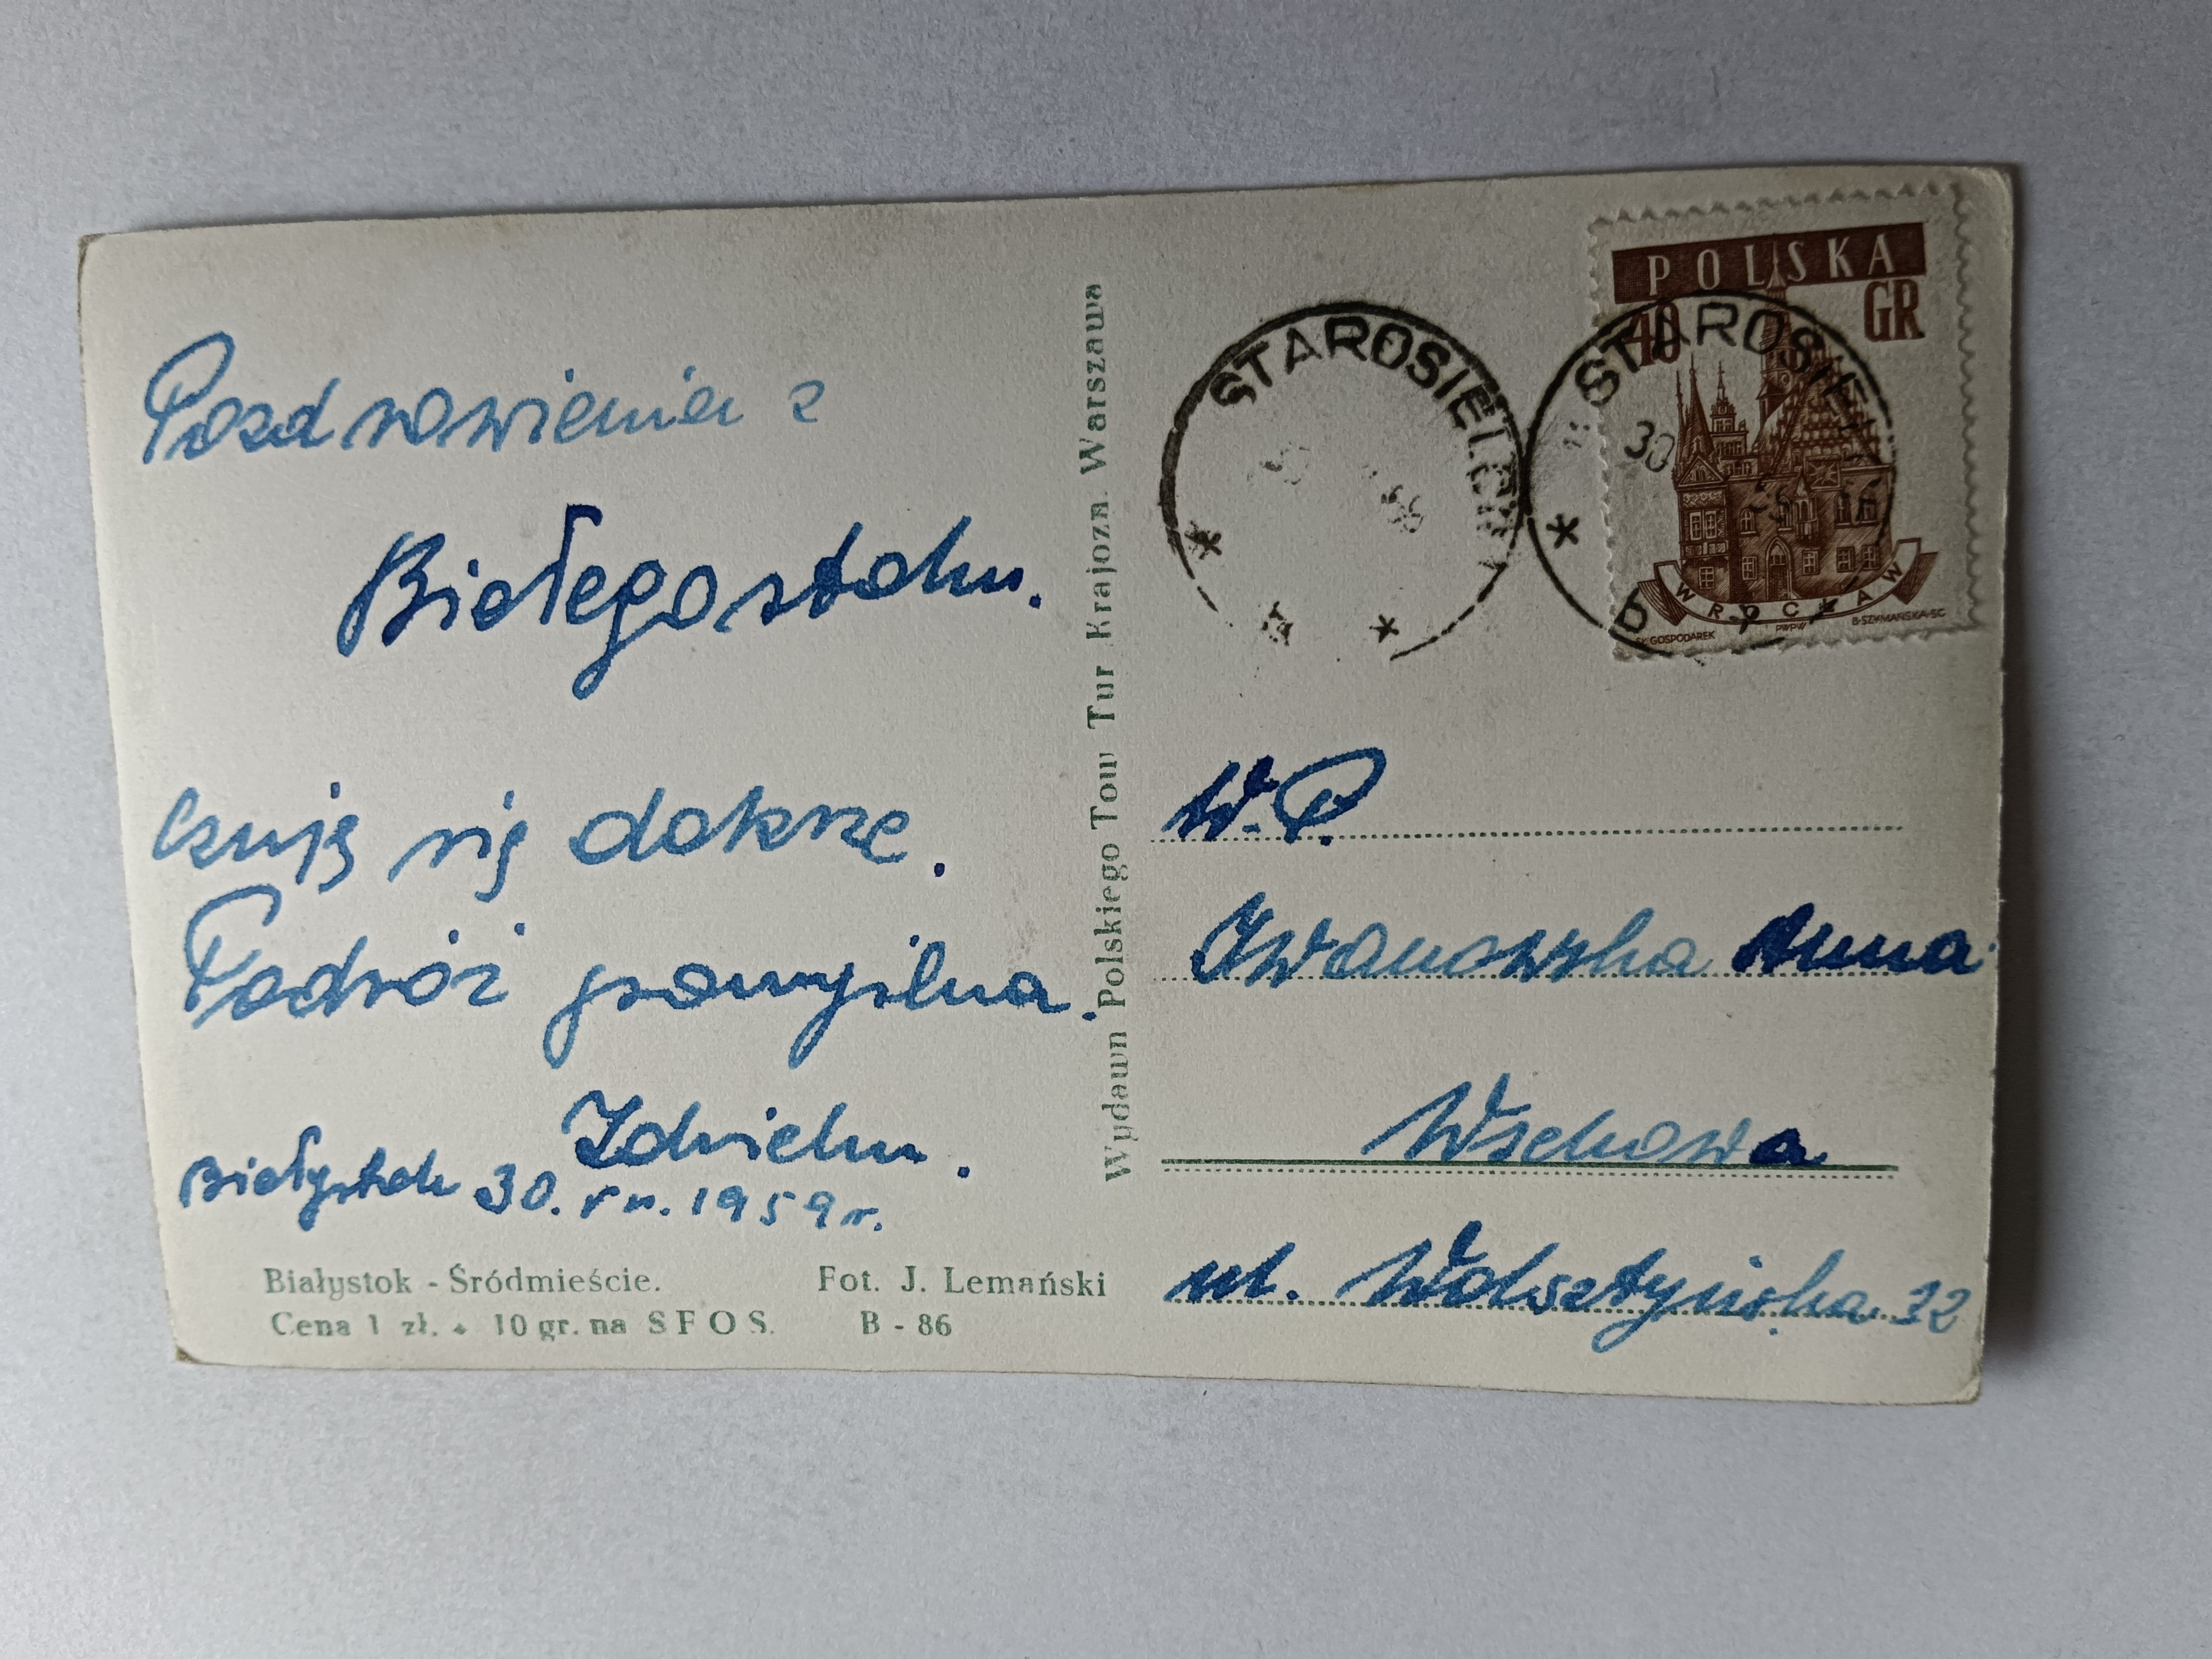 Pozdrowienia z
Białegostoku.
Czuję się dobrze.
Podróż pomyślna.
Zdzichu.
Białystok 30.VII.1959r.
Białystok - Śródmieście.
Fot. J. Lemański
Cena 1 zł. + 10 gr. na SFOS.
B - 86
Wydawn Polskiego Tow Tur Krajozn. Warszawa
STAROSIELCE
POLSKA
40 GR
STAROSIE
30
WROCŁAW
GOSPODAREK
PWPW
B·SZYMAŃSKA·SC
W.P.
Iwanowska Anna
Wschowa
ul. Wolsztyńska 32